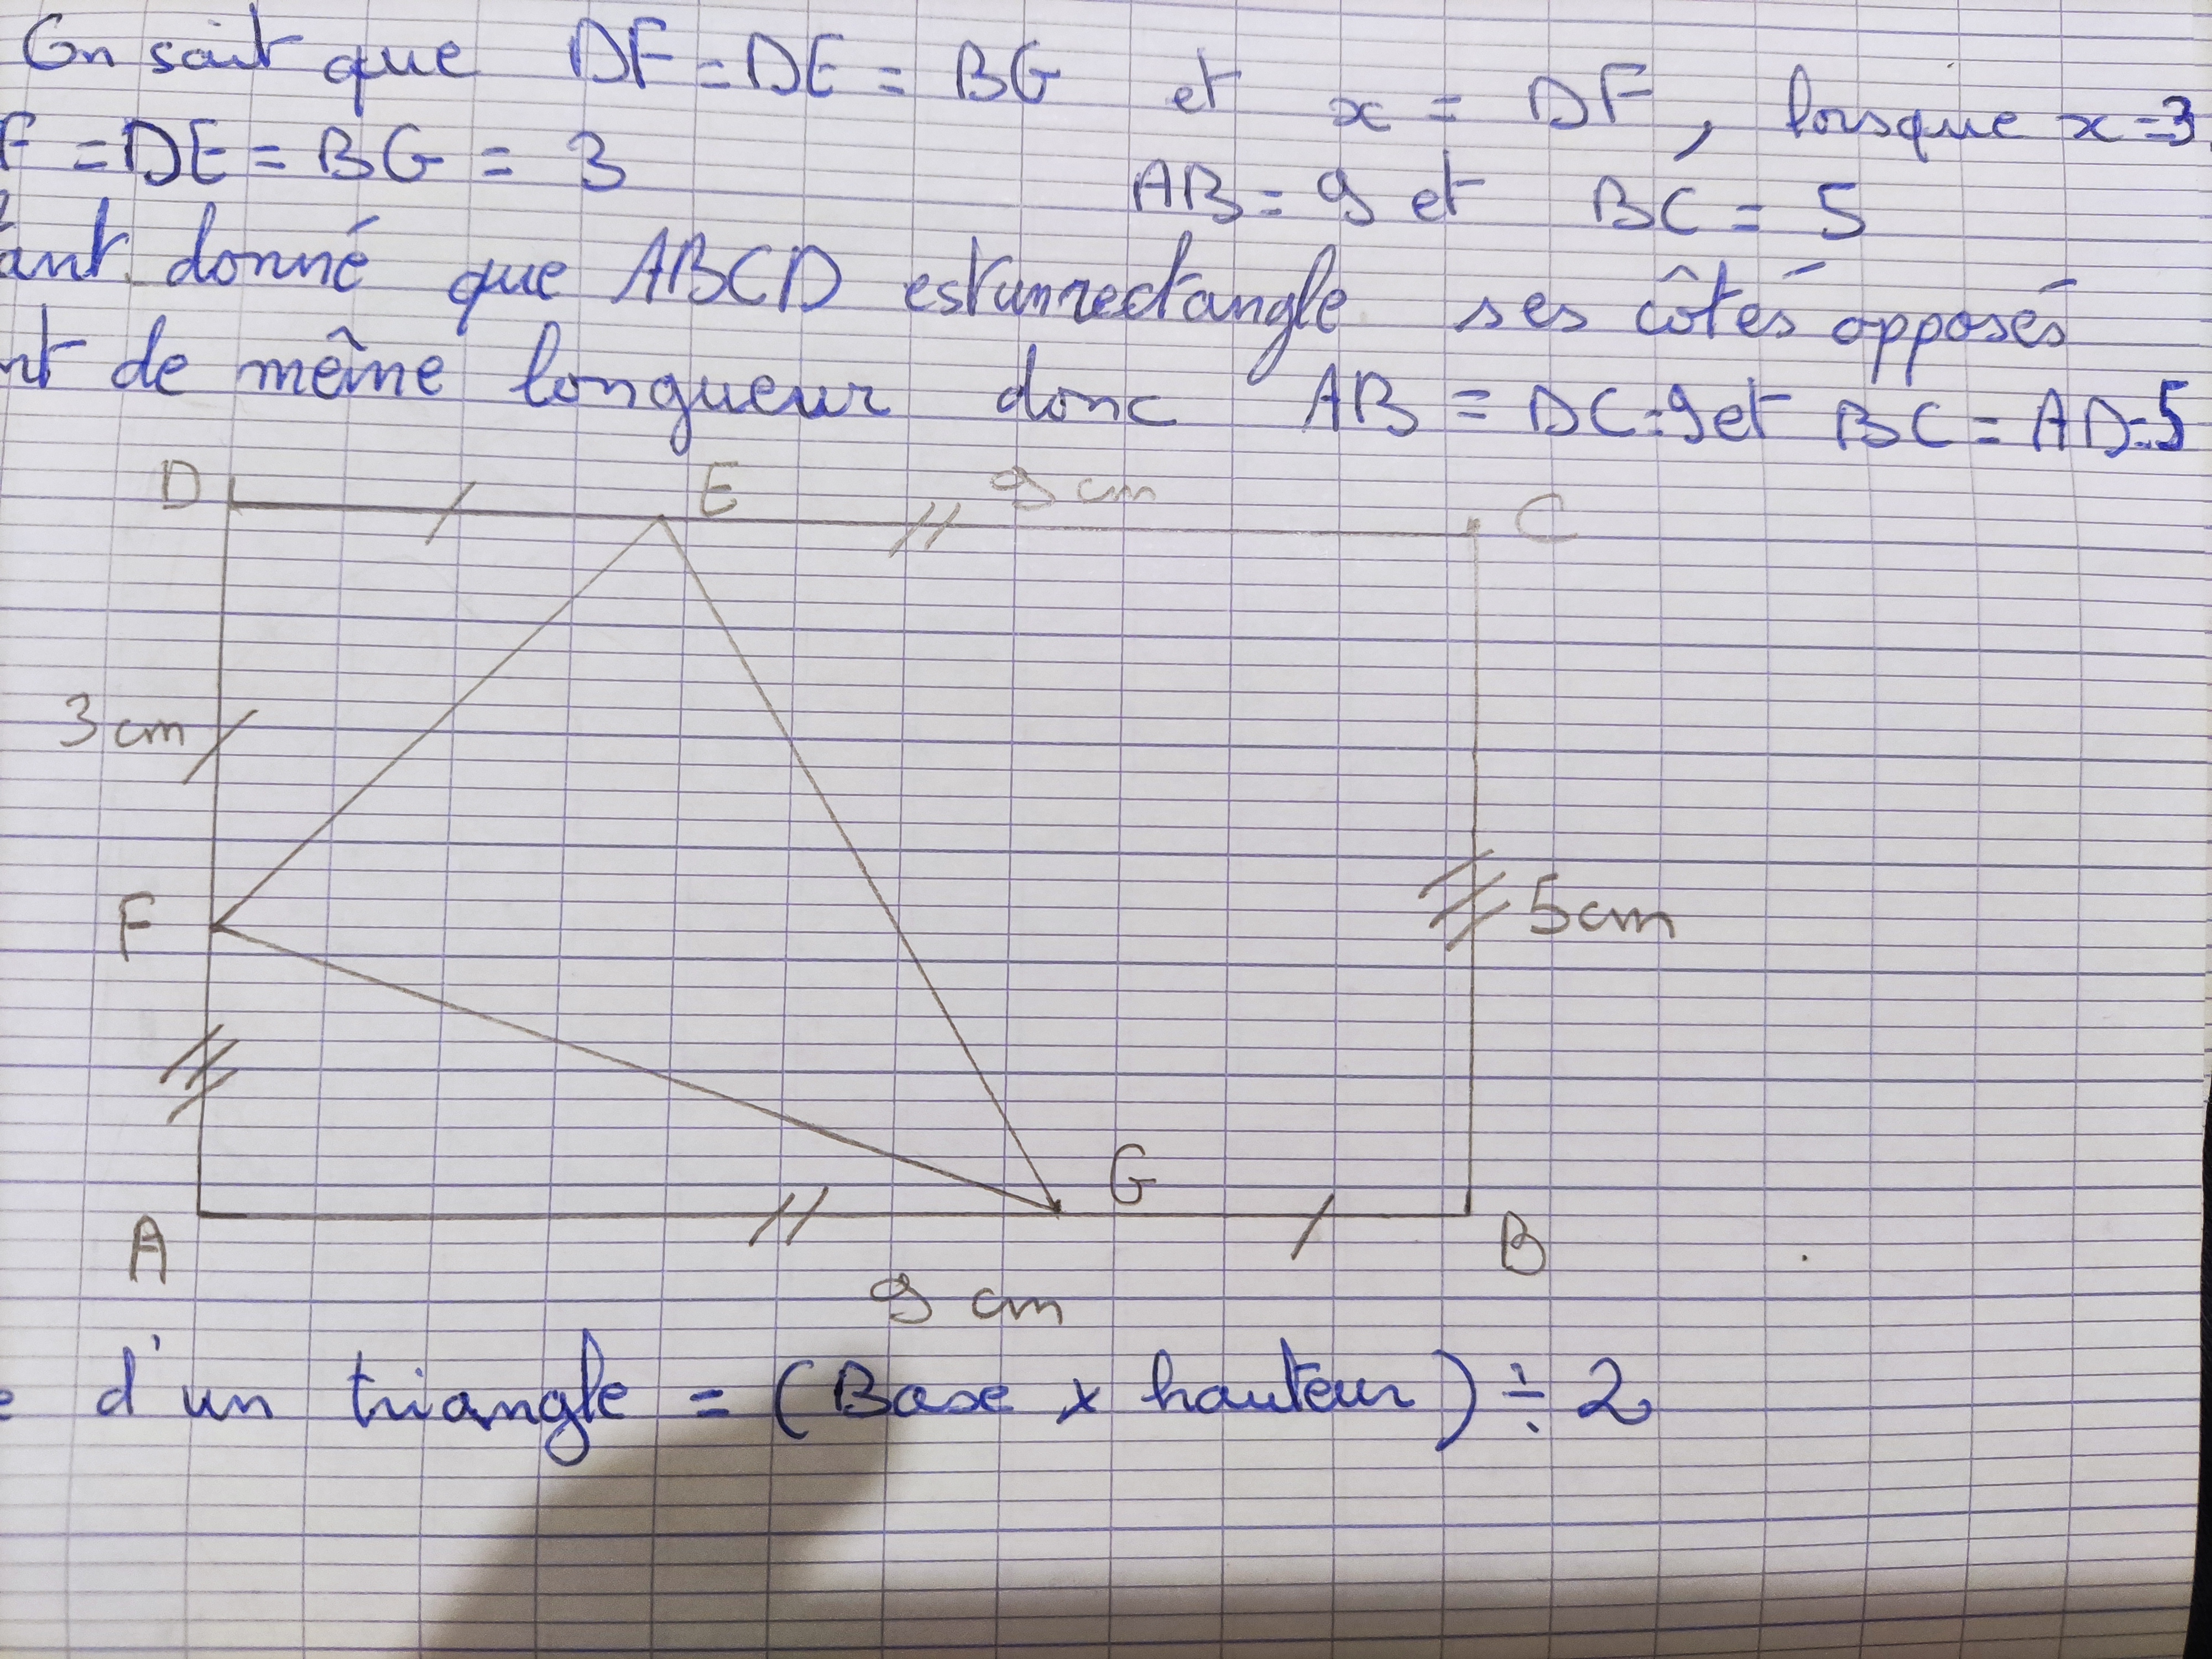 On sait que DF = DE = BG et x = DF, lorsque x = 3
F = DE = BG = 3 AB = 9 et BC = 5
ant donné que ABCD est un rectangle ses côtés opposés
nt de même longueur donc AB = DC = 9 et BC = AD = 5
D E 9 cm C
3 cm
F 5 cm
G
A B
9 cm
e d'un triangle = (Base x hauteur) ÷ 2